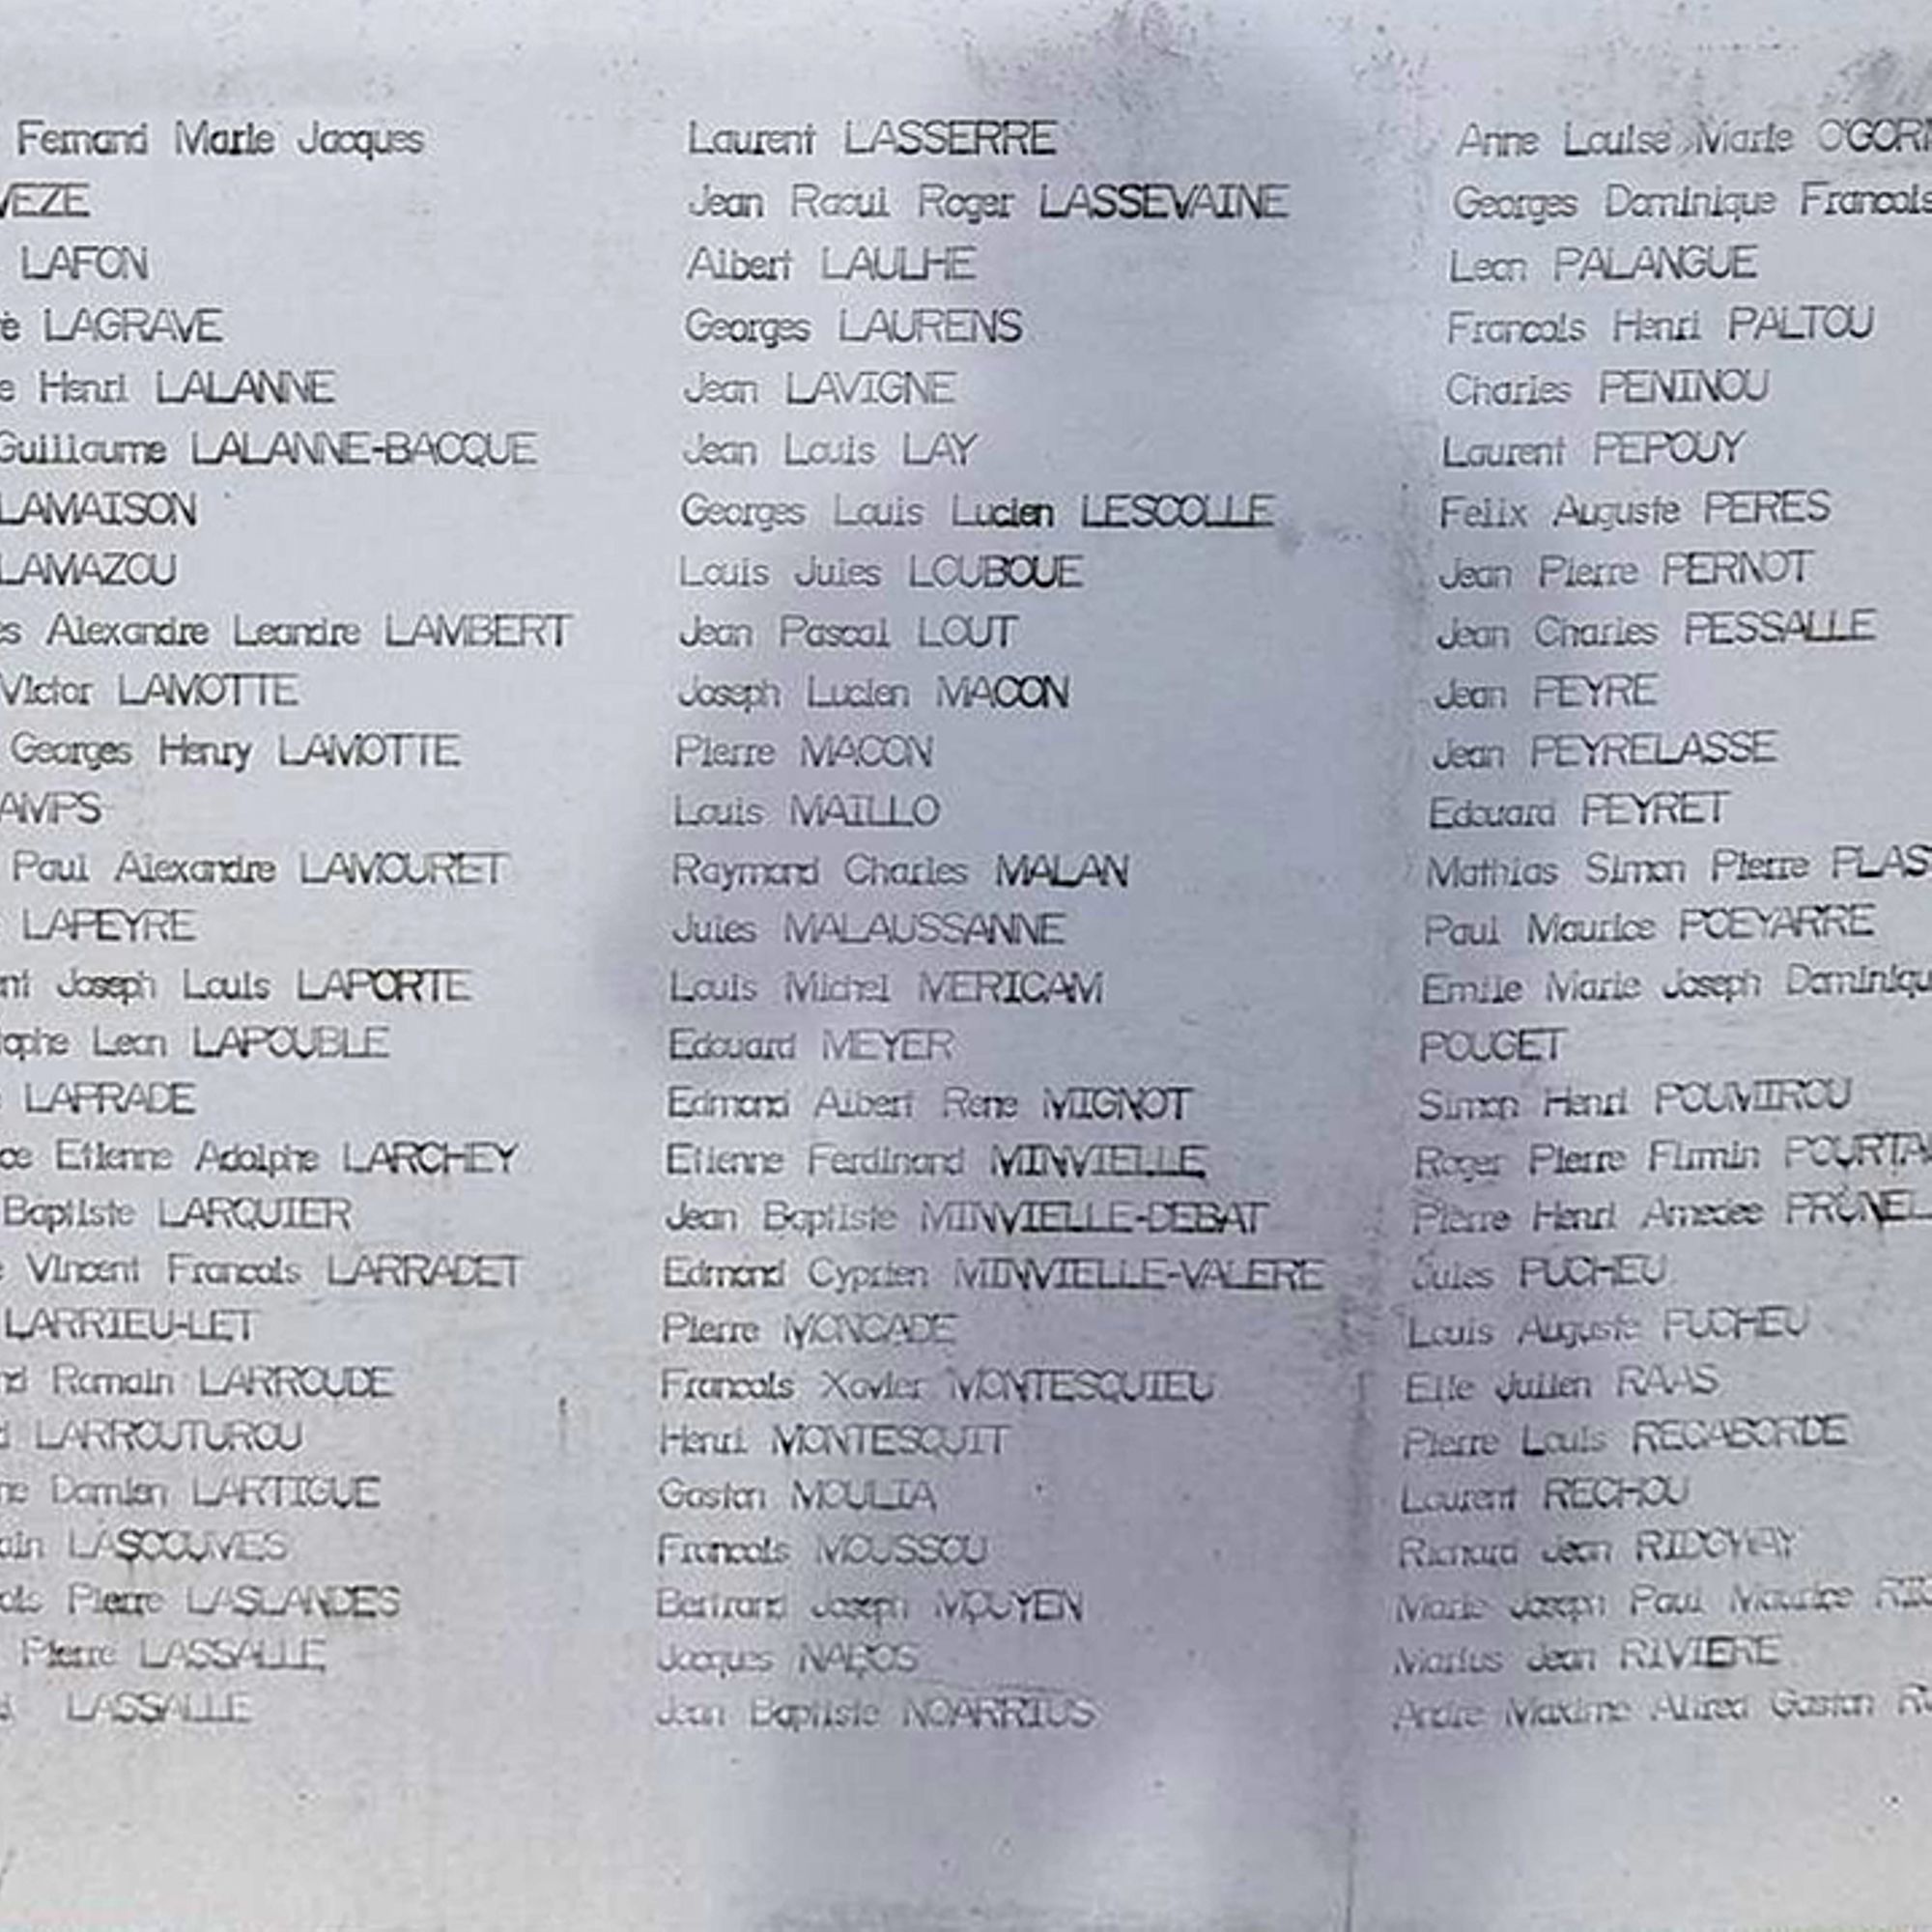 Fernand Marie Jacques
LAFON
LAGRAVE
Henri LALANNE
Guillaume LALANNE-BACQUE
LAMAISON
LAMAZOU
Alexandre Leandre LAMBERT
Victor LAMOTTE
Georges Henry LAMOTTE
Paul Alexandre LAMOURET
LAPEYRE
Joseph Louis LAPORTE
Leon LAPOUBLE
LAPRADE
Etienne Adolphe LARCHEY
Baptiste LARQUIER
Vincent Francois LARRADET
LARRIEU-LET
Romain LARROUDE
LARROUTUROU
Damien LARTIGUE
LASCOUMES
Pierre LASLANDES
Pierre LASSALLE
LASSALLE
Laurent LASSERRE
Jean Raoul Roger LASSEVAINE
Albert LAULHE
Georges LAURENS
Jean LAVIGNE
Jean Louis LAY
Georges Louis Lucien LESCOLLE
Louis Jules LOUBOUE
Jean Pascal LOUT
Joseph Lucien MACON
Pierre MACON
Louis MAILLO
Raymond Charles MALAN
Jules MALAUSSANNE
Louis Michel MERICAM
Edouard MEYER
Edmond Albert Rene MIGNOT
Etienne Ferdinand MINVIELLE
Jean Baptiste MINVIELLE-DEBAT
Edmond Cyprien MINVIELLE-VALERE
Pierre MONCADE
Francois Xavier MONTESQUIEU
Henri MONTESQUIT
Gaston MOULIA
Francois MOUSSOU
Bertrand Joseph MOUYEN
Jacques NABOS
Jean Baptiste NOARRIUS
Anne Louise Marie
Georges Dominique Francois
Leon PALANGUE
Francois Henri PALTOU
Charles PENINOU
Laurent PEPOUY
Felix Auguste PERES
Jean Pierre PERNOT
Jean Charles PESSALLE
Jean PEYRE
Jean PEYRELASSE
Edouard PEYRET
Mathias Simon Pierre
Paul Maurice POEYARRE
Emile Marie Joseph
POUGET
Simon Henri POUMIROU
Roger Pierre Firmin
Pierre Henri Amedee
Jules PUCHEU
Louis Auguste PUCHEU
Elie Julien RAAS
Pierre Louis RECABORDE
Laurent RECHOU
Richard Jean RIDGWAY
Marie Joseph Paul Maurice
Marius Jean RIVIERE
Andre Maxime Alfred Gaston